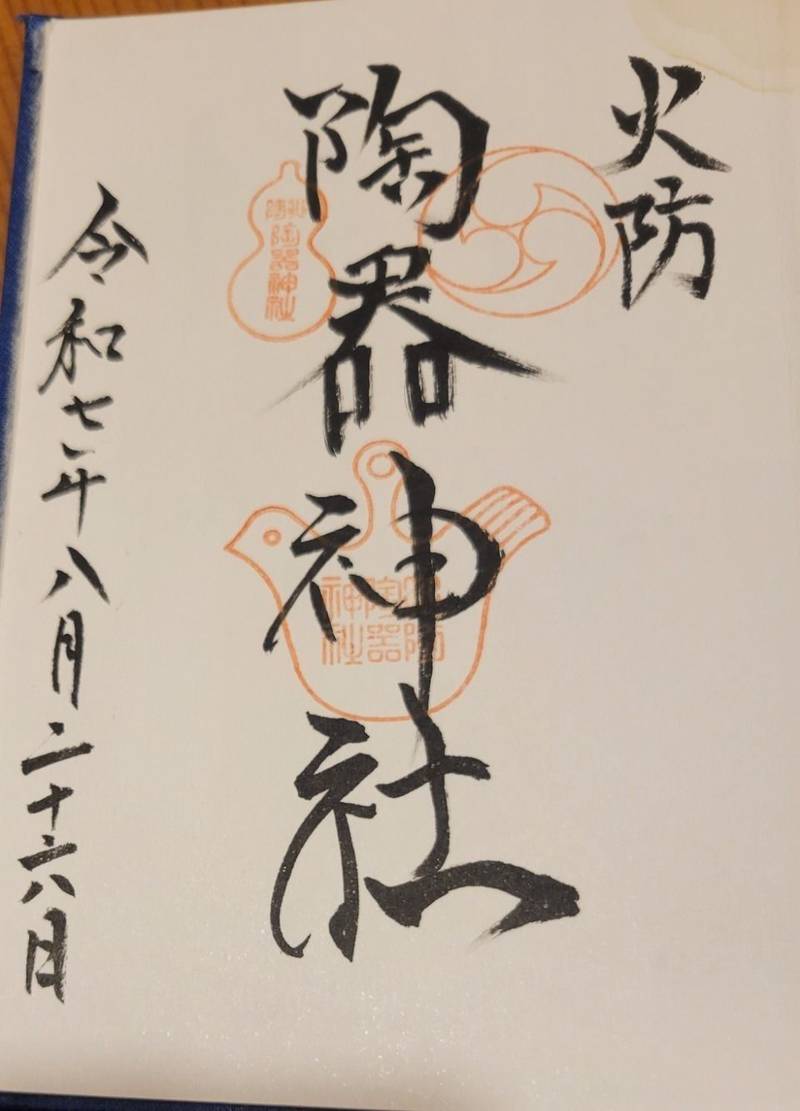 火防
陶器神社
令和七年八月二十六日
陶器神社
陶器
神社